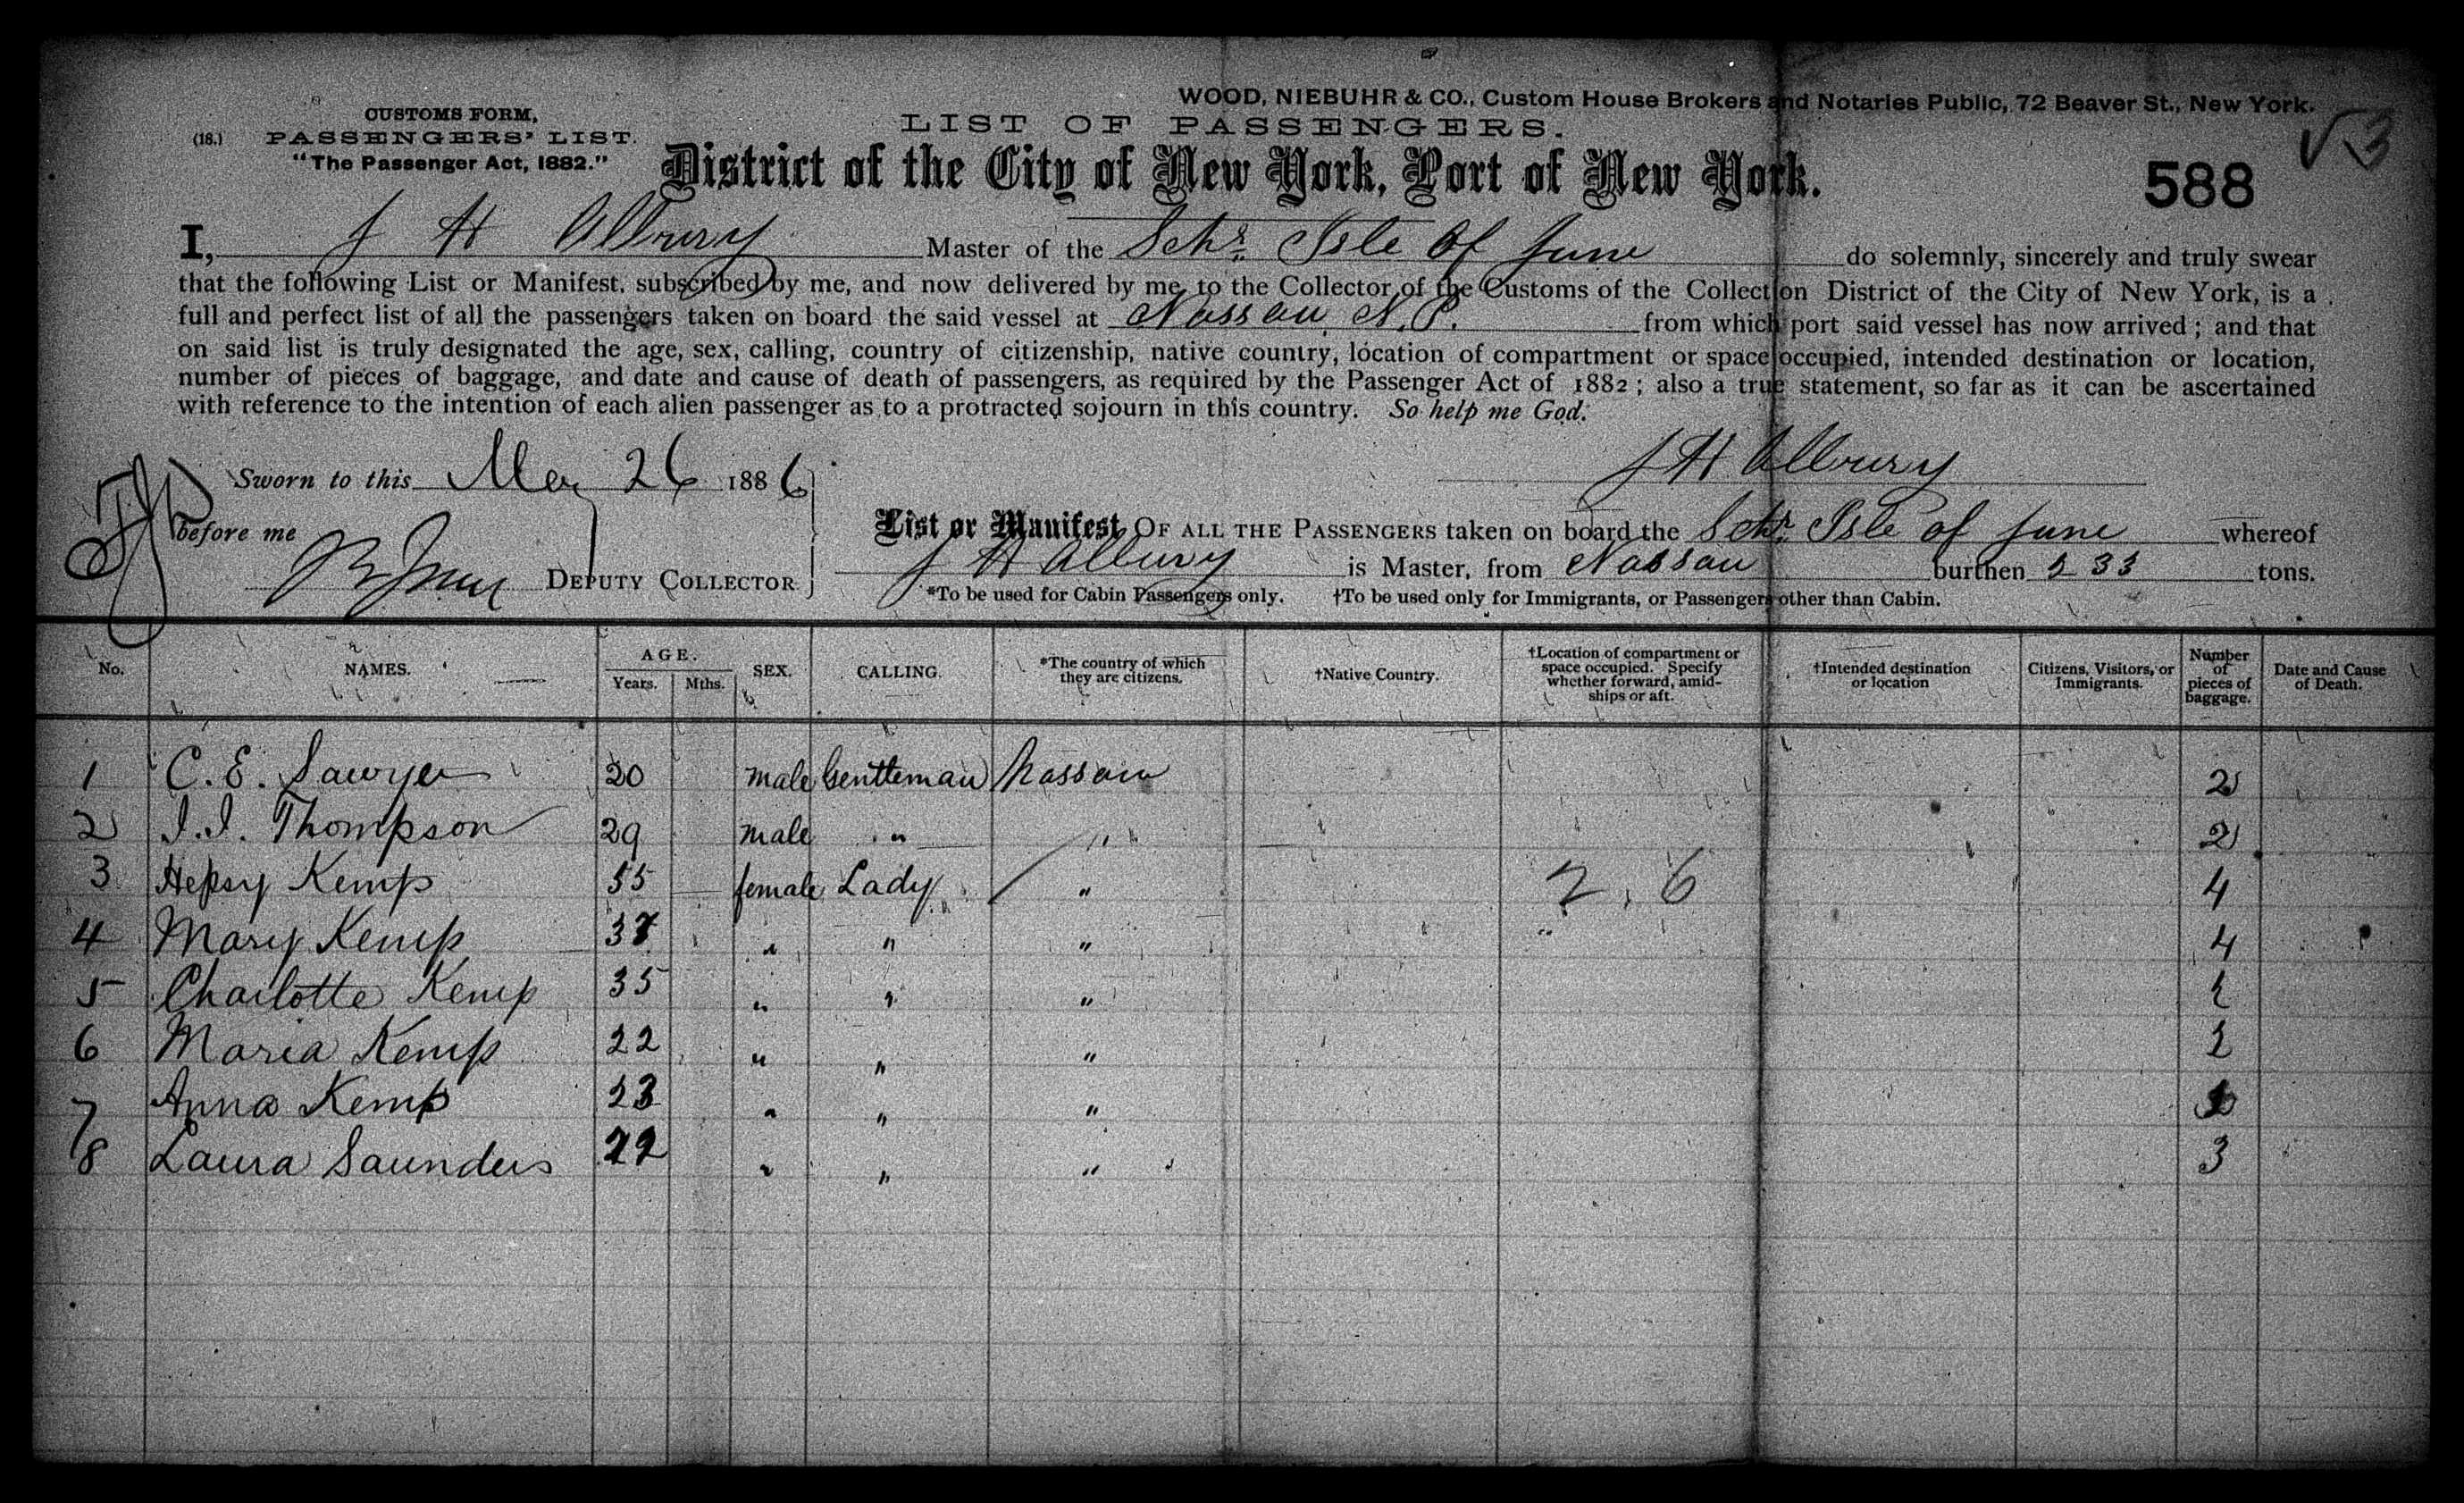 WOOD, NIEBUHR & CO., Custom House Brokers and Notaries Public, 72 Beaver St., New York.
CUSTOMS FORM,
(18.) PASSENGERS' LIST.
"The Passenger Act, 1882."
LIST OF PASSENGERS.
District of the City of New York, Port of New York.
588
I, J H Albury Master of the Schr. Isle of June do solemnly, sincerely and truly swear
that the following List or Manifest, subscribed by me, and now delivered by me to the Collector of the Customs of the Collection District of the City of New York, is a
full and perfect list of all the passengers taken on board the said vessel at Nassau N.P. from which port said vessel has now arrived; and that
on said list is truly designated the age, sex, calling, country of citizenship, native country, location of compartment or space occupied, intended destination or location,
number of pieces of baggage, and date and cause of death of passengers, as required by the Passenger Act of 1882; also a true statement, so far as it can be ascertained
with reference to the intention of each alien passenger as to a protracted sojourn in this country. So help me God.
J H Albury
Sworn to this May 26 1886
before me
DEPUTY COLLECTOR
List or Manifest OF ALL THE PASSENGERS taken on board the Schr. Isle of June whereof
J H Albury is Master, from Nassau burthen 233 tons.
*To be used for Cabin Passengers only. †To be used only for Immigrants, or Passengers other than Cabin.
No. NAMES. AGE. Years. Mths. SEX. CALLING. *The country of which they are citizens. †Native Country. †Location of compartment or space occupied. Specify whether forward, amidships or aft. †Intended destination or location Citizens, Visitors, or Immigrants. Number of pieces of baggage. Date and Cause of Death.
1 C. E. Sawyer 20 male Gentleman Nassau 2
2 J. J. Thompson 29 male " " 2
3 Hepsy Kemp 55 female Lady " 2.6 4
4 Mary Kemp 37 " " " 4
5 Charlotte Kemp 35 " " " 2
6 Maria Kemp 22 " " " 2
7 Anna Kemp 23 " " "
8 Laura Saunders 22 " " " 3